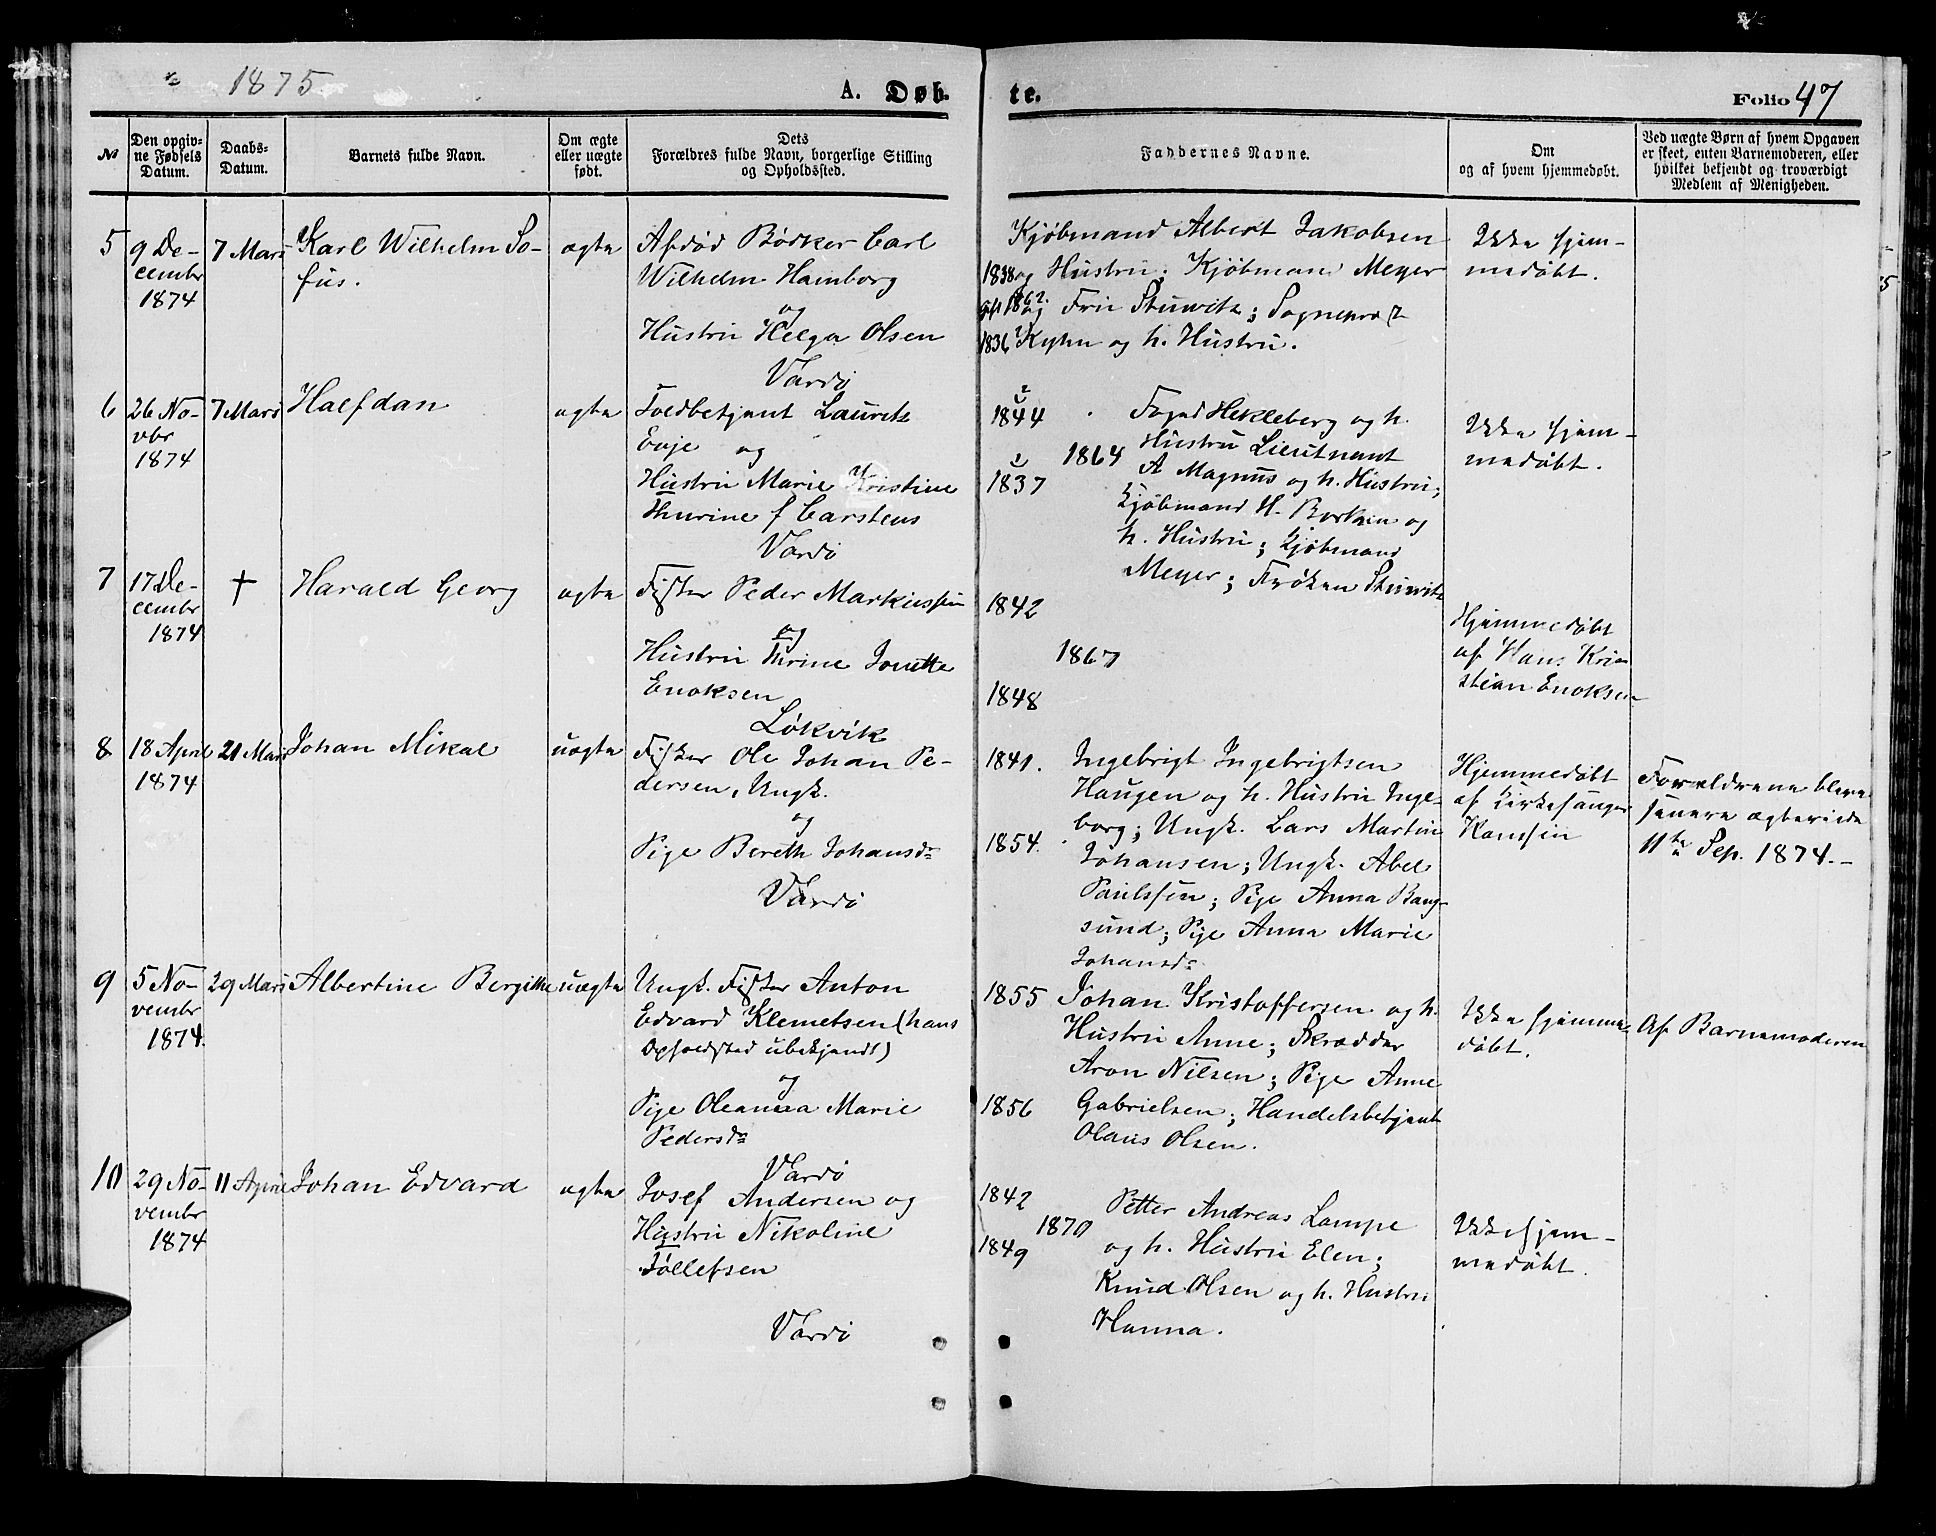 1875
A. Døb-
te.
Folio 47
№
Den opgiv-
ne Fødsels
Datum.
Daabs-
Datum.
Barnets fulde Navn.
Om ægte
eller uægte
født.
Dets
Forældres fulde Navn, borgerlige Stilling
og Opholdssted.
Faddernes Navne.
Om
og af hvem hjemmedøbt.
Ved uægte Børn af hvem Opgaven
er skeet, enten Barnemoderen, eller
hvilket bekjendt og troværdigt
Medlem af Menigheden.
5
9 De-
cembr
1874
7 Mars
Karl Wilhelm So-
fus.
ægte
Afdød Bødker Carl
Wilhelm Hamborg
og
Hustru Helga Olsen
Vardø
1838
1862.
1836
Kjøbmand Albert Jakobsen
og Hustru; Kjøbmand Meyer
og Fru Stuwitz; Sogneprest
Kyhn og h. Hustru.
Ikke hjem-
medøbt.
6
26 No-
vbr
1874
7 Mars
Halfdan
ægte
Toldbetjent Lauritz
Evje og
Hustru Marie Kristine
Thurine f Carstens
Vardø
1844
1864
1837
Foged Hekleberg og h.
Hustru Lieutnant
A Magnus og h. Hustru;
Kjøbmand H. Borken og
h. Hustru; Kjøbmand
Meyer; Frøken Stuwitz
Ikke hjem-
medøbt.
7
17 De-
cembr
1874
†
Harald Georg
ægte
Fisker Peder Markussen
og
Hustru Thrine Jonette
Enoksen
Løkvik
1842
1867
1848
Hjemmedøbt
af Hans Kri-
stian Enoksen
8
18 April
1874
21 Mars
Johan Mikal
uægte
Fisker Ole Johan Pe-
dersen, Ungk.
og
Pige Bereth Johansdr
Vardø
1841.
1854.
Ingebrigt Ingebrigtsen
Haugen og h. Hustru Inge-
borg; Ungk. Lars Martin
Johansen; Ungk. Abel
Paulssen; Pige Anna Bang-
sund; Pige Anna Marie
Johansdr
Hjemmedøbt
af Kirkesanger
Hanssen
Forældrene bleve
senere ægteviede
11te Sep. 1874.-
9
5 No-
vembr
1874.
29 Mars
Albertine Bergitte
uægte
Ungk. Fisker Anton
Edvard Klemetsen (hans
Opholdsted ubekjendt)
og
Pige Oleanna Marie
Pedersdr
Vardø
1855
1856
Johan Kristoffersen og h.
Hustru Anne; Skrædder
Aron Nilsen; Pige Anne
Gabrielsen; Handelsbetjent
Olaus Olsen.
Ikke hjemme-
døbt.
Af Barnemoderen
10
29 No-
vembr
1874
11 April
Johan Edvard
ægte
Josef Andersen og
Hustru Nikoline
Tollefsen
Vardø
1842
1870
1849
Petter Andreas Lampe
og h. Hustru Elen;
Knud Olsen og h. Hustru
Hanna.
Ikke hjem-
medøbt.